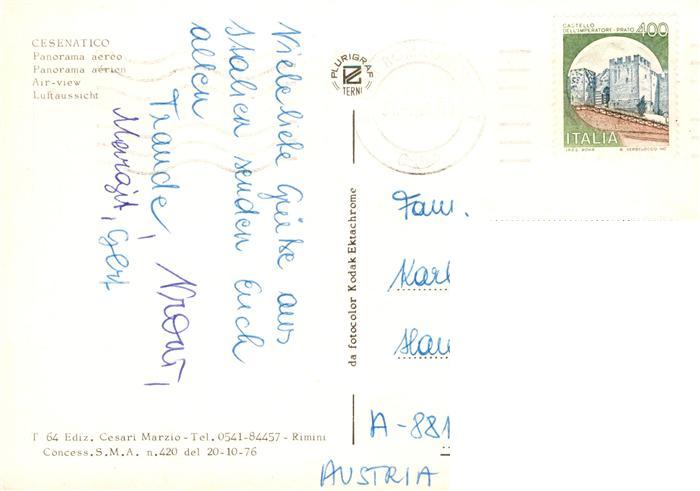 CESENATICO
Panorama aereo
Panorama aérien
Air-view
Luftaussicht
Viele liebe Grüße aus
Italien senden Euch
allen
Traude,
Gert
PLURIGRAF
TERNI
da fotocolor Kodak Ektachrome
CASTELLO
DELL'IMPERATORE - PRATO 400
ITALIA
I.P.Z.S. ROMA
Fam.
Karl
Hau
A-881
AUSTRIA
T 64 Ediz. Cesari Marzio - Tel. 0541-84457 - Rimini
Concess. S.M.A. n.420 del 20-10-76